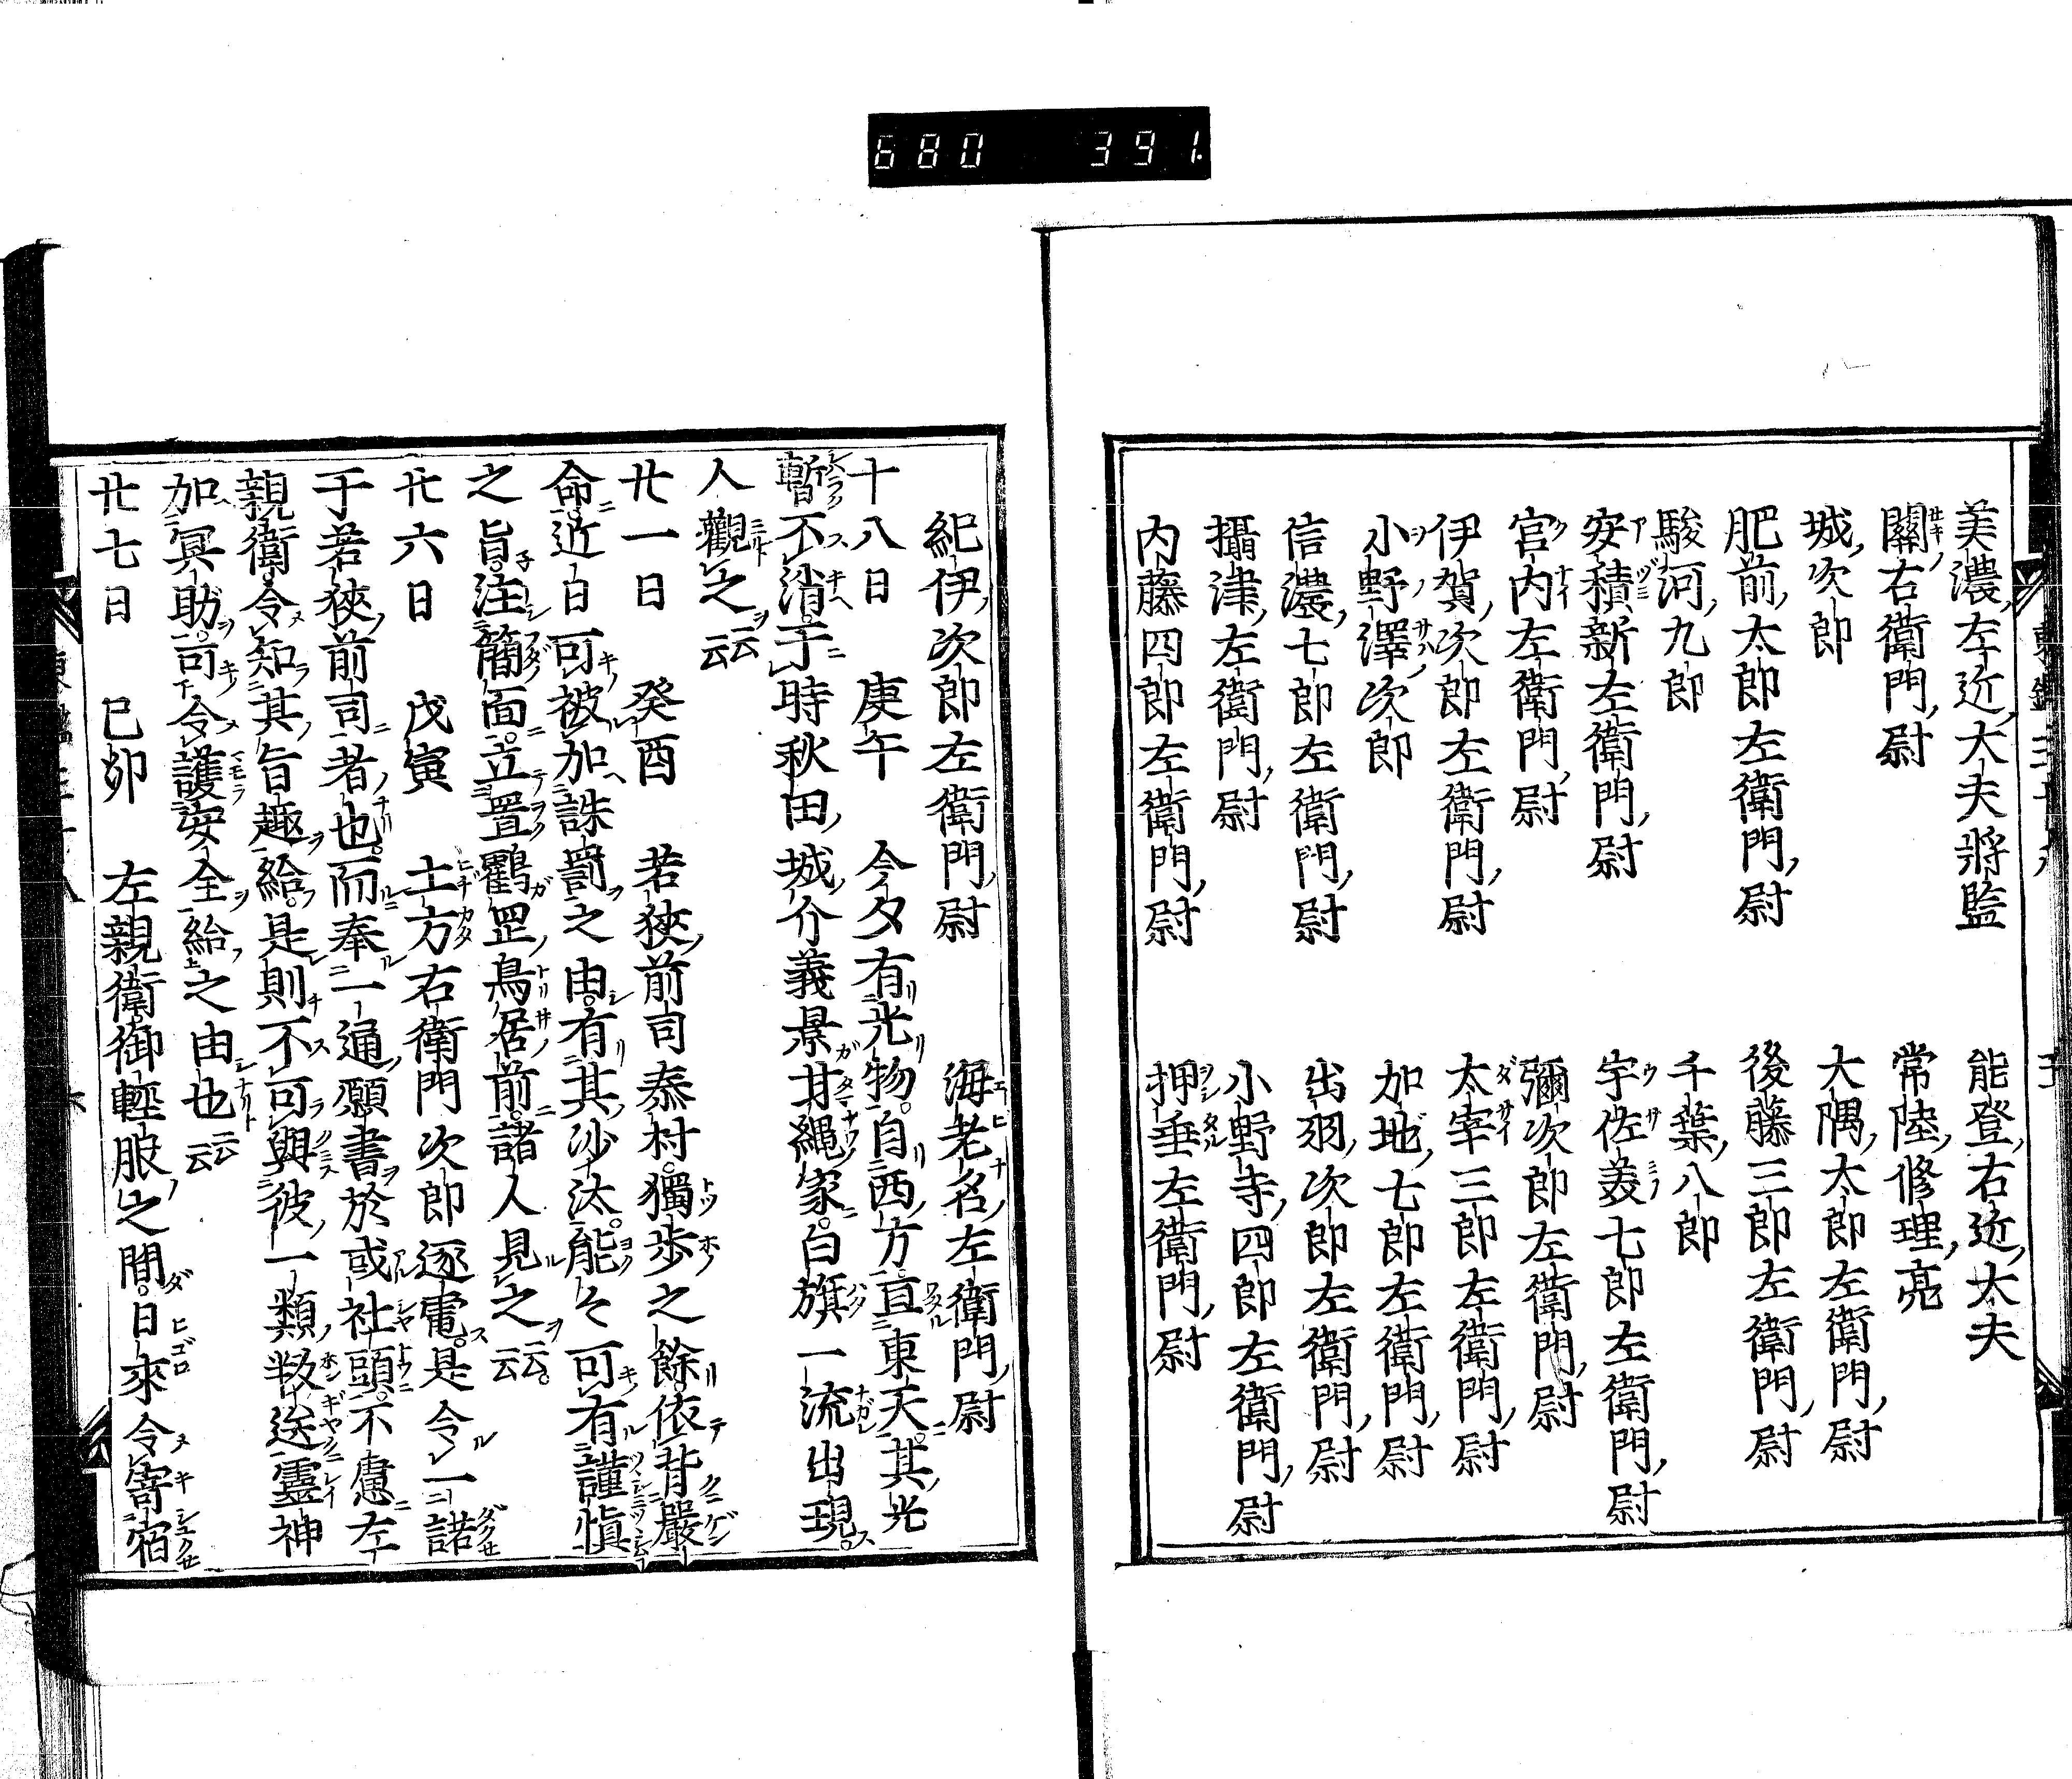 680 391.
美濃左近大夫將監 能登右近大夫
關右衛門尉 常陸修理亮
城次郎 大隅太郎左衛門尉
肥前太郎左衛門尉 後藤三郎左衛門尉
駿河九郎 千葉八郎
安積新左衛門尉 宇佐美七郎左衛門尉
宮内左衛門尉 彌次郎左衛門尉
伊賀次郎左衛門尉 太宰三郎左衛門尉
小野澤次郎 加地七郎左衛門尉
信濃七郎左衛門尉 出羽次郎左衛門尉
攝津左衛門尉 小野寺四郎左衛門尉
内藤四郎左衛門尉 押垂左衛門尉
紀伊次郎左衛門尉 海老名左衛門尉
十八日 庚午 今夕有光物。自西方。亘東天。其光
暫不消。于時秋田城介義景甘縄家。白旗一流出現。
人觀之云云
廿一日 癸酉 若狹前司泰村。獨歩之餘。依背嚴
命。近日可被加誅罰之由。有其沙汰。能々可有謹愼
之旨。注簡面。立置鸛罡鳥居前。諸人見之云云。
廿六日 戊寅 土方右衛門次郎逐電。是令一諾
于若狹前司者也。而奉一通願書於或社頭。不慮左
親衛。令知其旨趣給。是則不可與彼一類叛逆靈神
加冥助。可令護安全給之由也云云
廿七日 已卯 左親衛。御輕服之間。日來令寄宿